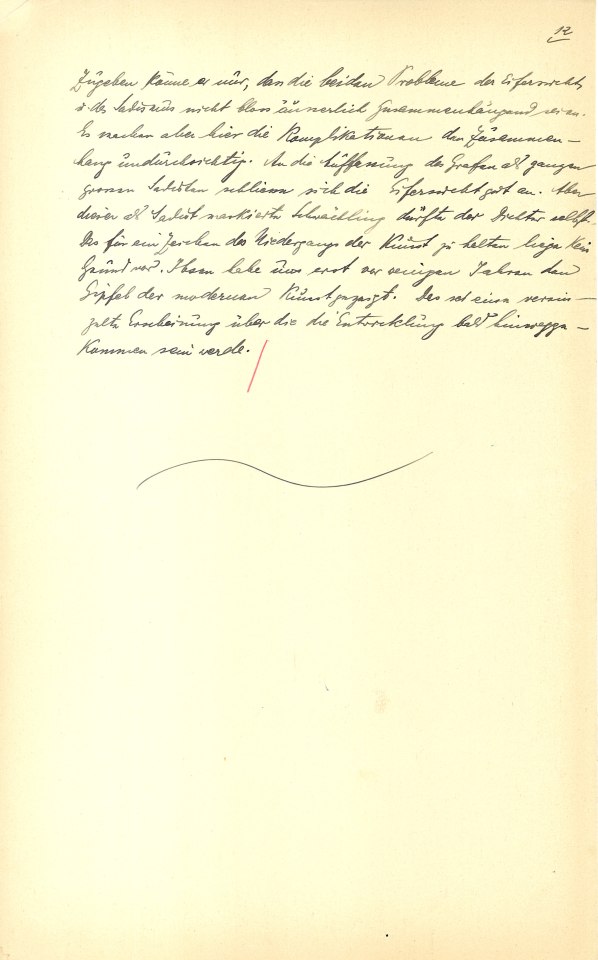 12
Zugeben könne er nur, dass die beiden Probleme der Eifersucht
u. des Sadismus nicht bloss äusserlich zusammenhängend seien.
Es machen aber hier die Komplikationen den Zusammen-
hang undurchsichtig. An die Auffassung des Grafen als ganzen
grossen Sadisten schliesse sich die Eifersucht gut an. Aber
dieser als Sadist markierte Schwächling dürfte der Dichter selbst
Dies für ein Zeichen des Niedergangs der Kunst zu halten liege kein
Grund vor. Ibsen habe uns erst vor wenigen Jahren den
Gipfel der modernen Kunst gezeigt. Das sei eine verein-
zelte Erscheinung über die die Entwicklung bald hinwegge-
kommen sein werde.